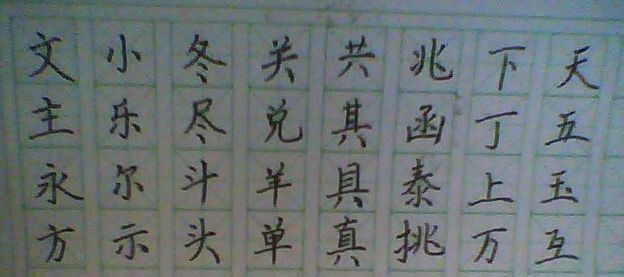 文小冬关共兆下天
主乐尽兑其函丁五
永尔斗羊具泰上玉
方示头单真挑万互